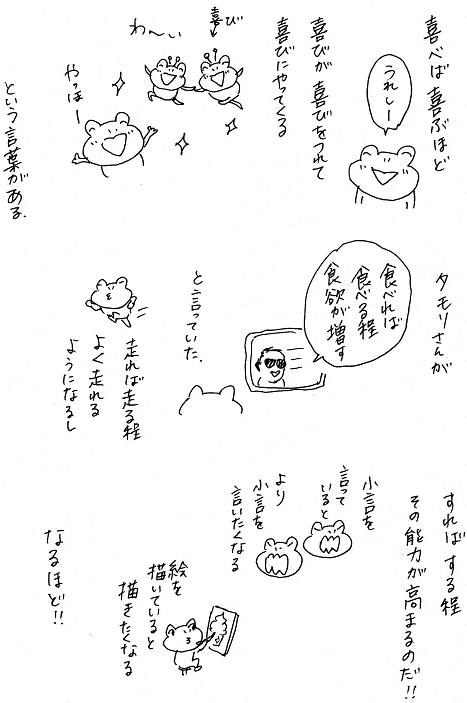 喜べば 喜ぶほど
うれしー
喜びが 喜びをつれて
喜びにやってくる
喜び
わーい
やっほー
という言葉がある.
タモリさんが
食べれば
食べる程
食欲が増す
と言っていた.
走れば走る程
よく走れる
ようになるし
すれば する程
その能力が高まるのだ!!
小言を
言って
いると
より
小言を
言いたくなる
絵を
描いていると
描きたくなる
なるほど!!